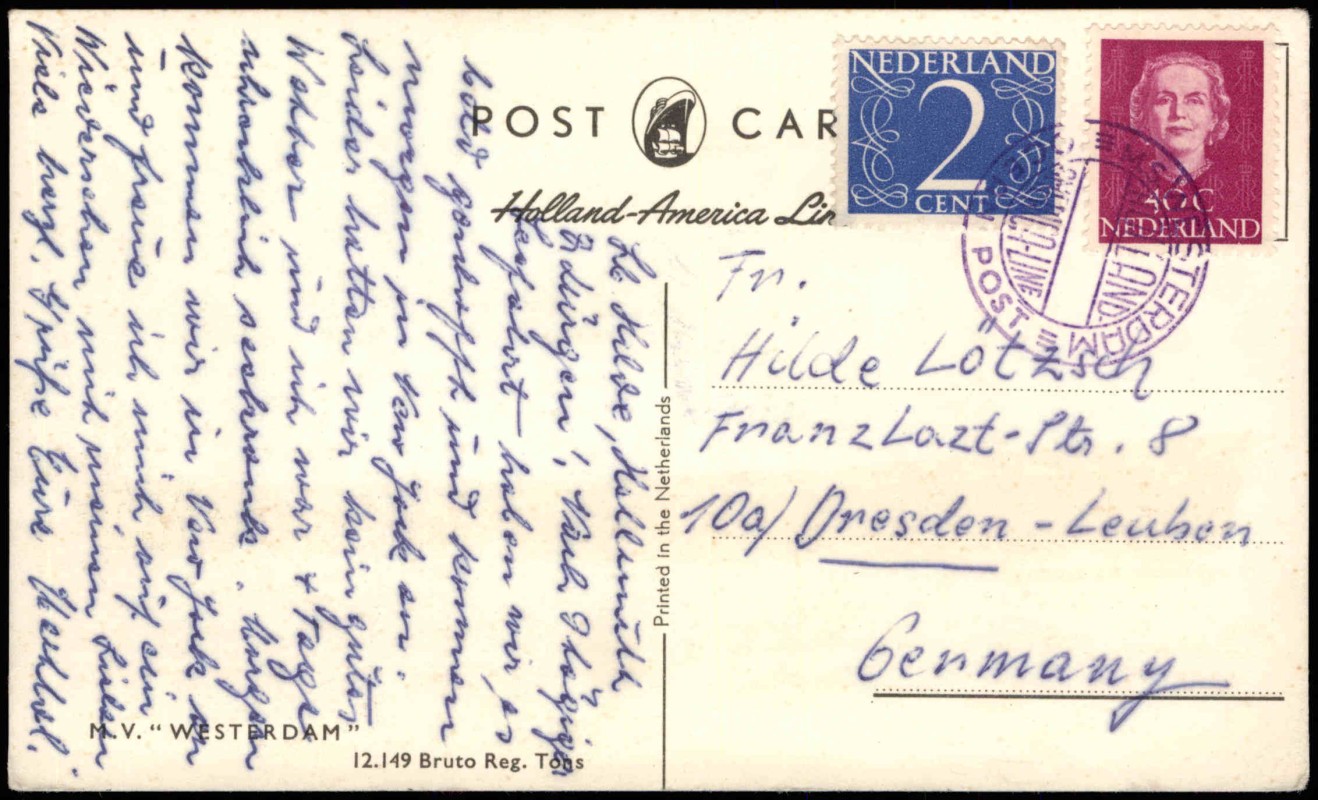 POST CAR
Holland-America Lin
NEDERLAND
2
CENT
40 C
NEDERLAND
M.S. WESTERDAM
POST
HOLLAND
Fr.
Hilde Lötzsch
Franz Lazt-Str. 8
10a/ Dresden-Leuben
Germany
Printed in the Netherlands
M.V. "WESTERDAM"
12.149 Bruto Reg. Tons
Lb Hilde, Hellmuth
& Jürgen! Nach 9 tägiger
Seefahrt haben wir es
bald geschafft und kommen
morgen in New York an.
Leider hatten wir kein gutes
Wetter und ich war 4 Tage
seekrank. Morgen
kommen wir in New York an
und freue ich mich auf ein
Wiedersehen mit meinen Lieben
Viele herzl. Grüße Eure